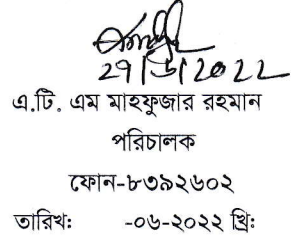 29/6/2022
এ.টি. এম মাহফুজার রহমান
পরিচালক
ফোন-৮৩৯২৬০২
তারিখঃ -০৬-২০২২ খ্রিঃ